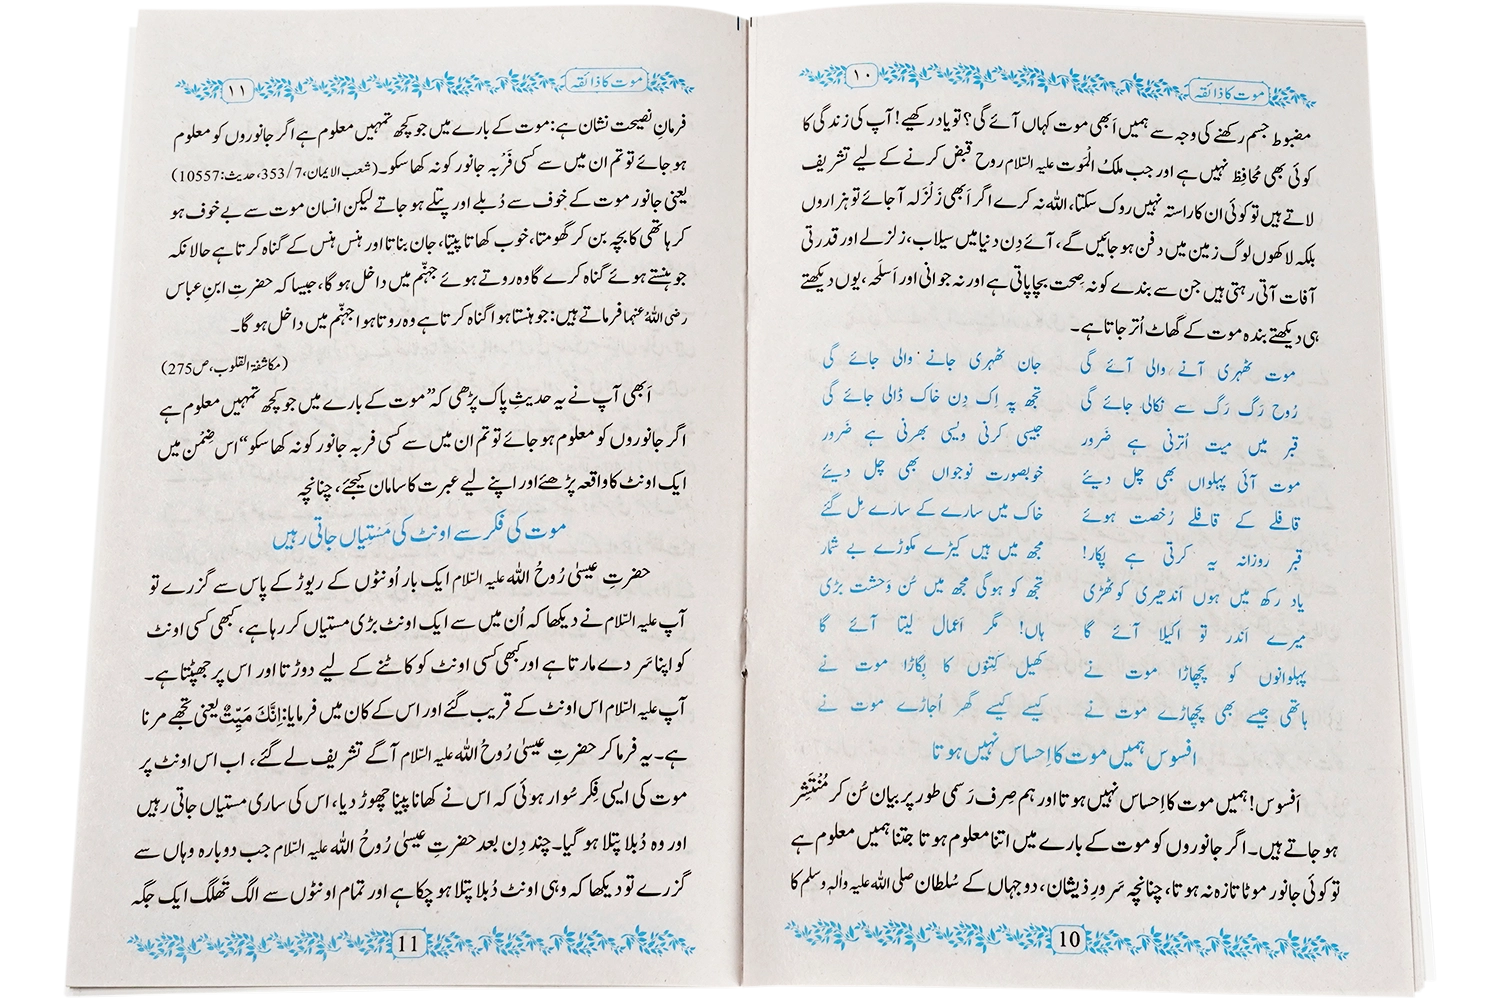 موت کا ذائقہ
۱۰
مضبوط جسم رکھنے کی وجہ سے ہمیں اَبھی موت کہاں آئے گی؟ تو یاد رکھیے! آپ کی زندگی کا
کوئی بھی مُحافِظ نہیں ہے اور جب ملکُ الْمَوت علیہ السّلام روح قبض کرنے کے لیے تشریف
لاتے ہیں تو کوئی ان کا راستہ نہیں روک سکتا، اللہ نہ کرے اگر اَبھی زَلْزَلہ آ جائے تو ہزاروں
بلکہ لاکھوں لوگ زمین میں دفن ہو جائیں گے، آئے دِن دنیا میں سیلاب، زلزلے اور قدرتی
آفات آتی رہتی ہیں جن سے بندے کو نہ صِحت بچا پاتی ہے اور نہ جوانی اور اَسلَحہ، یوں دیکھتے
ہی دیکھتے بندہ موت کے گھاٹ اُتر جاتا ہے۔
موت ٹھہری آنے والی آئے گی جان ٹھہری جانے والی جائے گی
رُوح رَگ رَگ سے نکالی جائے گی تجھ پہ اِک دِن خاک ڈالی جائے گی
قبر میں میت اُترنی ہے ضَرور جیسی کرنی ویسی بھرنی ہے ضَرور
موت آئی پہلواں بھی چل دیئے خوبصورت نوجواں بھی چل دیئے
قافلے کے قافلے رُخصت ہوئے خاک میں سارے کے سارے مِل گئے
قبر روزانہ یہ کرتی ہے پکار! مجھ میں ہیں کیڑے مکوڑے بے شمار
یاد رکھ میں ہوں اَندھیری کوٹھڑی تجھ کو ہوگی مجھ میں سُن وَحشت بڑی
میرے اَندر تو اکیلا آئے گا ہاں! مگر اَعمال لیتا آئے گا
پہلوانوں کو پچھاڑا موت نے کھیل کِتنوں کا بِگاڑا موت نے
ہاتھی جیسے بھی پچھاڑے موت نے کیسے کیسے گھر اُجاڑے موت نے
افسوس ہمیں موت کا اِحساس نہیں ہوتا
اَفسوس! ہمیں موت کا اِحساس نہیں ہوتا اور ہم صِرف رَسمی طور پر بیان سُن کر مُنْتَشِر
ہو جاتے ہیں۔ اگر جانوروں کو موت کے بارے میں اتنا معلوم ہوتا جتنا ہمیں معلوم ہے
تو کوئی جانور موٹا تازہ نہ ہوتا، چنانچہ سَرورِ ذیشان، دو جہاں کے سُلطان صلی اللہ علیہ واٰلہٖ وسلم کا
10
موت کا ذائقہ
۱۱
فرمانِ نصیحت نشان ہے: موت کے بارے میں جو کچھ تمہیں معلوم ہے اگر جانوروں کو معلوم
ہو جائے تو تم ان میں سے کسی فَرْبہ جانور کو نہ کھا سکو۔ (شعب الایمان، 7/353، حدیث: 10557)
یعنی جانور موت کے خوف سے دُبلے اور پتلے ہو جاتے لیکن انسان موت سے بے خوف ہو
کر ہاتھی کا بچہ بن کر گھومتا، خوب کھاتا پیتا، جان بناتا اور ہنس ہنس کے گناہ کرتا ہے حالانکہ
جو ہنستے ہوئے گناہ کرے گا وہ روتے ہوئے جہنّم میں داخل ہو گا، جیسا کہ حضرتِ ابنِ عباس
رضی اللہُ عنہما فرماتے ہیں: جو ہنستا ہوا گناہ کرتا ہے وہ روتا ہوا جہنّم میں داخل ہو گا۔
(مکاشفۃ القلوب، ص275)
اَبھی آپ نے یہ حدیثِ پاک پڑھی کہ ”موت کے بارے میں جو کچھ تمہیں معلوم ہے
اگر جانوروں کو معلوم ہو جائے تو تم ان میں سے کسی فربہ جانور کو نہ کھا سکو“ اس ضِمْن میں
ایک اونٹ کا واقعہ پڑھئے اور اپنے لیے عبرت کا سامان کیجئے، چنانچہ
موت کی فِکر سے اونٹ کی مَسْتیاں جاتی رہیں
حضرتِ عیسیٰ رُوحُ اللہ علیہ السّلام ایک بار اُونٹوں کے ریوڑ کے پاس سے گزرے تو
آپ علیہ السّلام نے دیکھا کہ اُن میں سے ایک اونٹ بڑی مستیاں کر رہا ہے، کبھی کسی اونٹ
کو اپنا سَر دے مارتا ہے اور کبھی کسی اونٹ کو کاٹنے کے لیے دوڑتا اور اس پر جھپٹتا ہے۔
آپ علیہ السّلام اس اونٹ کے قریب گئے اور اس کے کان میں فرمایا: اِنَّكَ مَيِّتٌ یعنی تجھے مرنا
ہے۔ یہ فرما کر حضرتِ عیسیٰ رُوحُ اللہ علیہ السّلام آگے تشریف لے گئے، اب اس اونٹ پر
موت کی ایسی فِکر سُوار ہوئی کہ اس نے کھانا پینا چھوڑ دیا، اس کی ساری مستیاں جاتی رہیں
اور وہ دُبلا پتلا ہو گیا۔ چند دِن بعد حضرتِ عیسیٰ رُوحُ اللہ علیہ السّلام جب دوبارہ وہاں سے
گزرے تو دیکھا کہ وہی اونٹ دُبلا پتلا ہو چکا ہے اور تمام اونٹوں سے الگ تَھلگ ایک جگہ
11